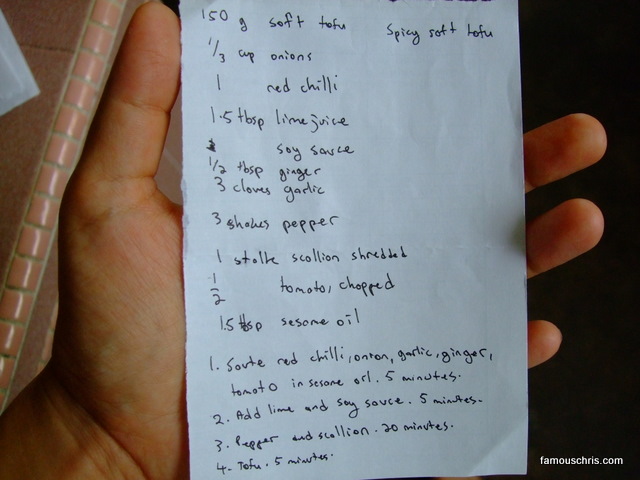 150 g soft tofu
Spicy soft tofu
1/3 cup onions
1 red chilli
1.5 tbsp lime juice
soy sauce
1/2 tbsp ginger
3 cloves garlic
3 shakes pepper
1 stalk scallion shredded
1/2 tomato, chopped
1.5 tbsp sesame oil
1. Saute red chilli, onion, garlic, ginger,
tomato in sesame oil. 5 minutes.
2. Add lime and soy sauce. 5 minutes.
3. Pepper and scallion. 20 minutes.
4. Tofu. 5 minutes.
famouschris.com